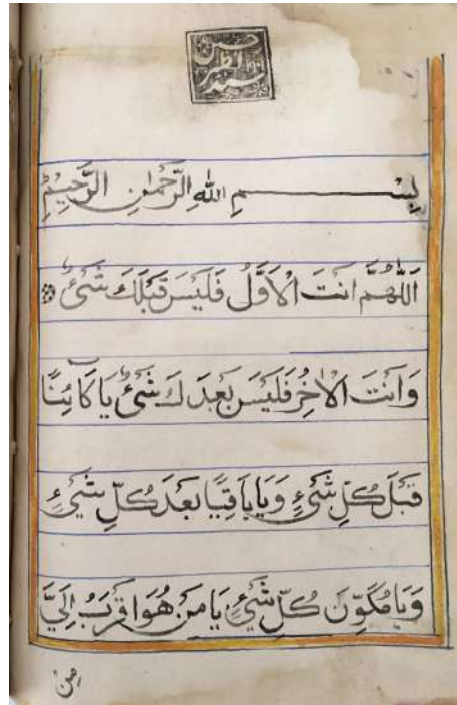 سید اطہر حسن
بِسْمِ اللهِ الرَّحْمٰنِ الرَّحِيْمِ
اَللّٰهُمَّ اَنْتَ الْاَوَّلُ فَلَيْسَ قَبْلَكَ شَیْءٌ
وَاَنْتَ الْاٰخِرُ فَلَيْسَ بَعْدَكَ شَیْءٌ يَا كَآئِنًا
قَبْلَ كُلِّ شَیْءٍ وَيَا بَاقِيًا بَعْدَ كُلِّ شَیْءٍ
وَيَا مُكَوِّنَ كُلِّ شَیْءٍ يَا مَنْ هُوَ اَقْرَبُ اِلَیَّ
مِنْ